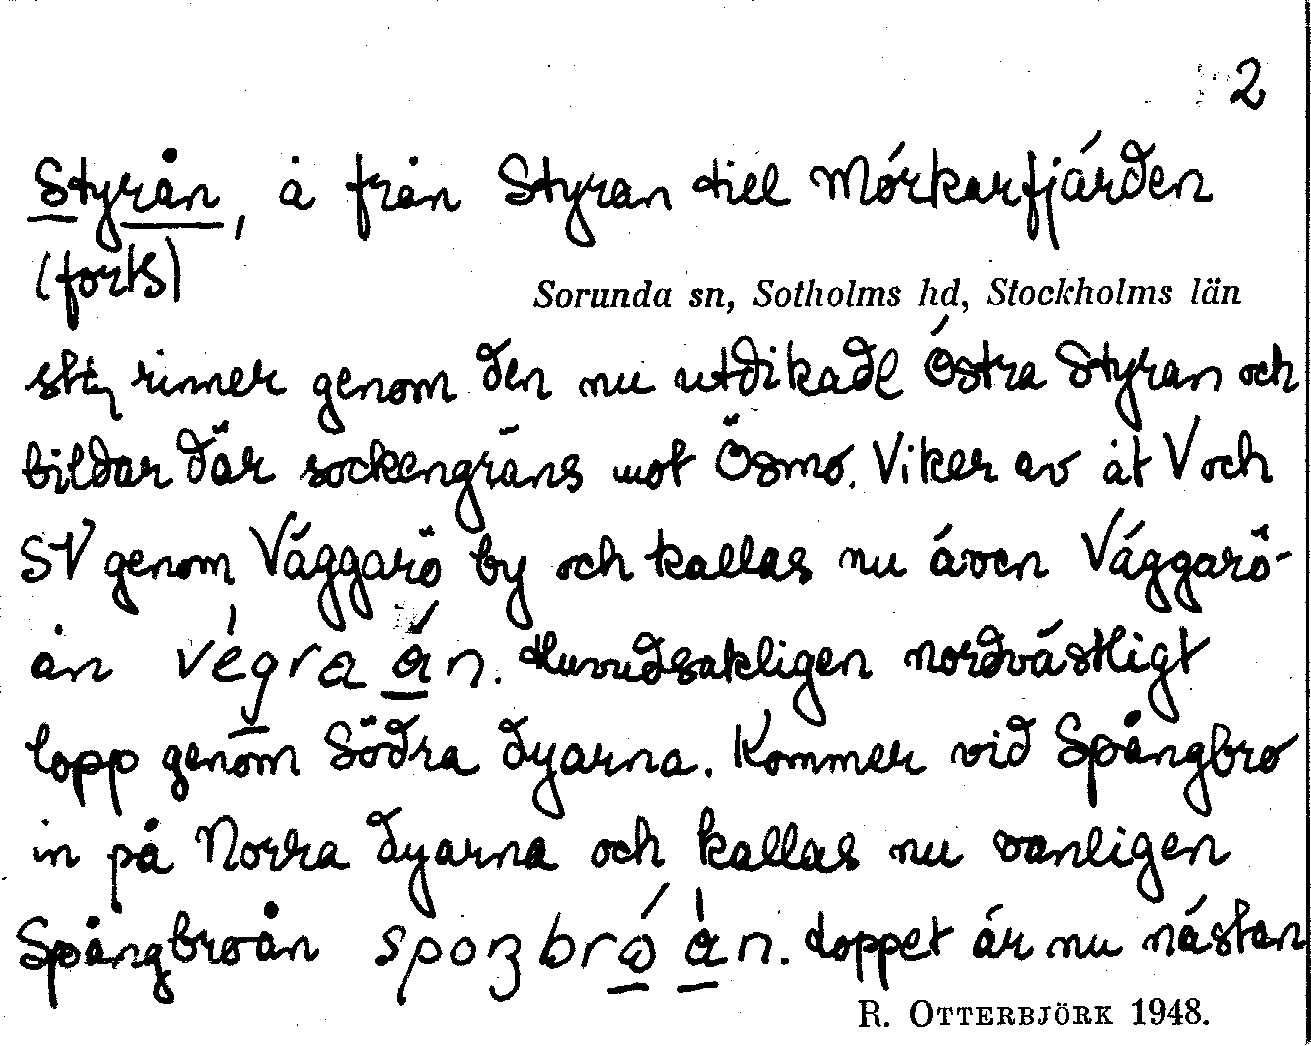 2
Styrån, å från Styran till Mörkarfjärden
(forts)
Sorunda sn, Sotholms hd, Stockholms län
rinner genom den nu utdikade Östra Styran och
bildar där sockengräns mot Ösmo. Viker av åt V och
SV genom Väggarö by och kallas nu även Väggarö-
ån vegra ån. Huvudsakligen nordvästligt
lopp genom Södra dyarna. Kommer vid Spångbro
in på Norra dyarna och kallas nu vanligen
Spångbroån loppet är nu nästan
R. OTTERBJÖRK 1948.